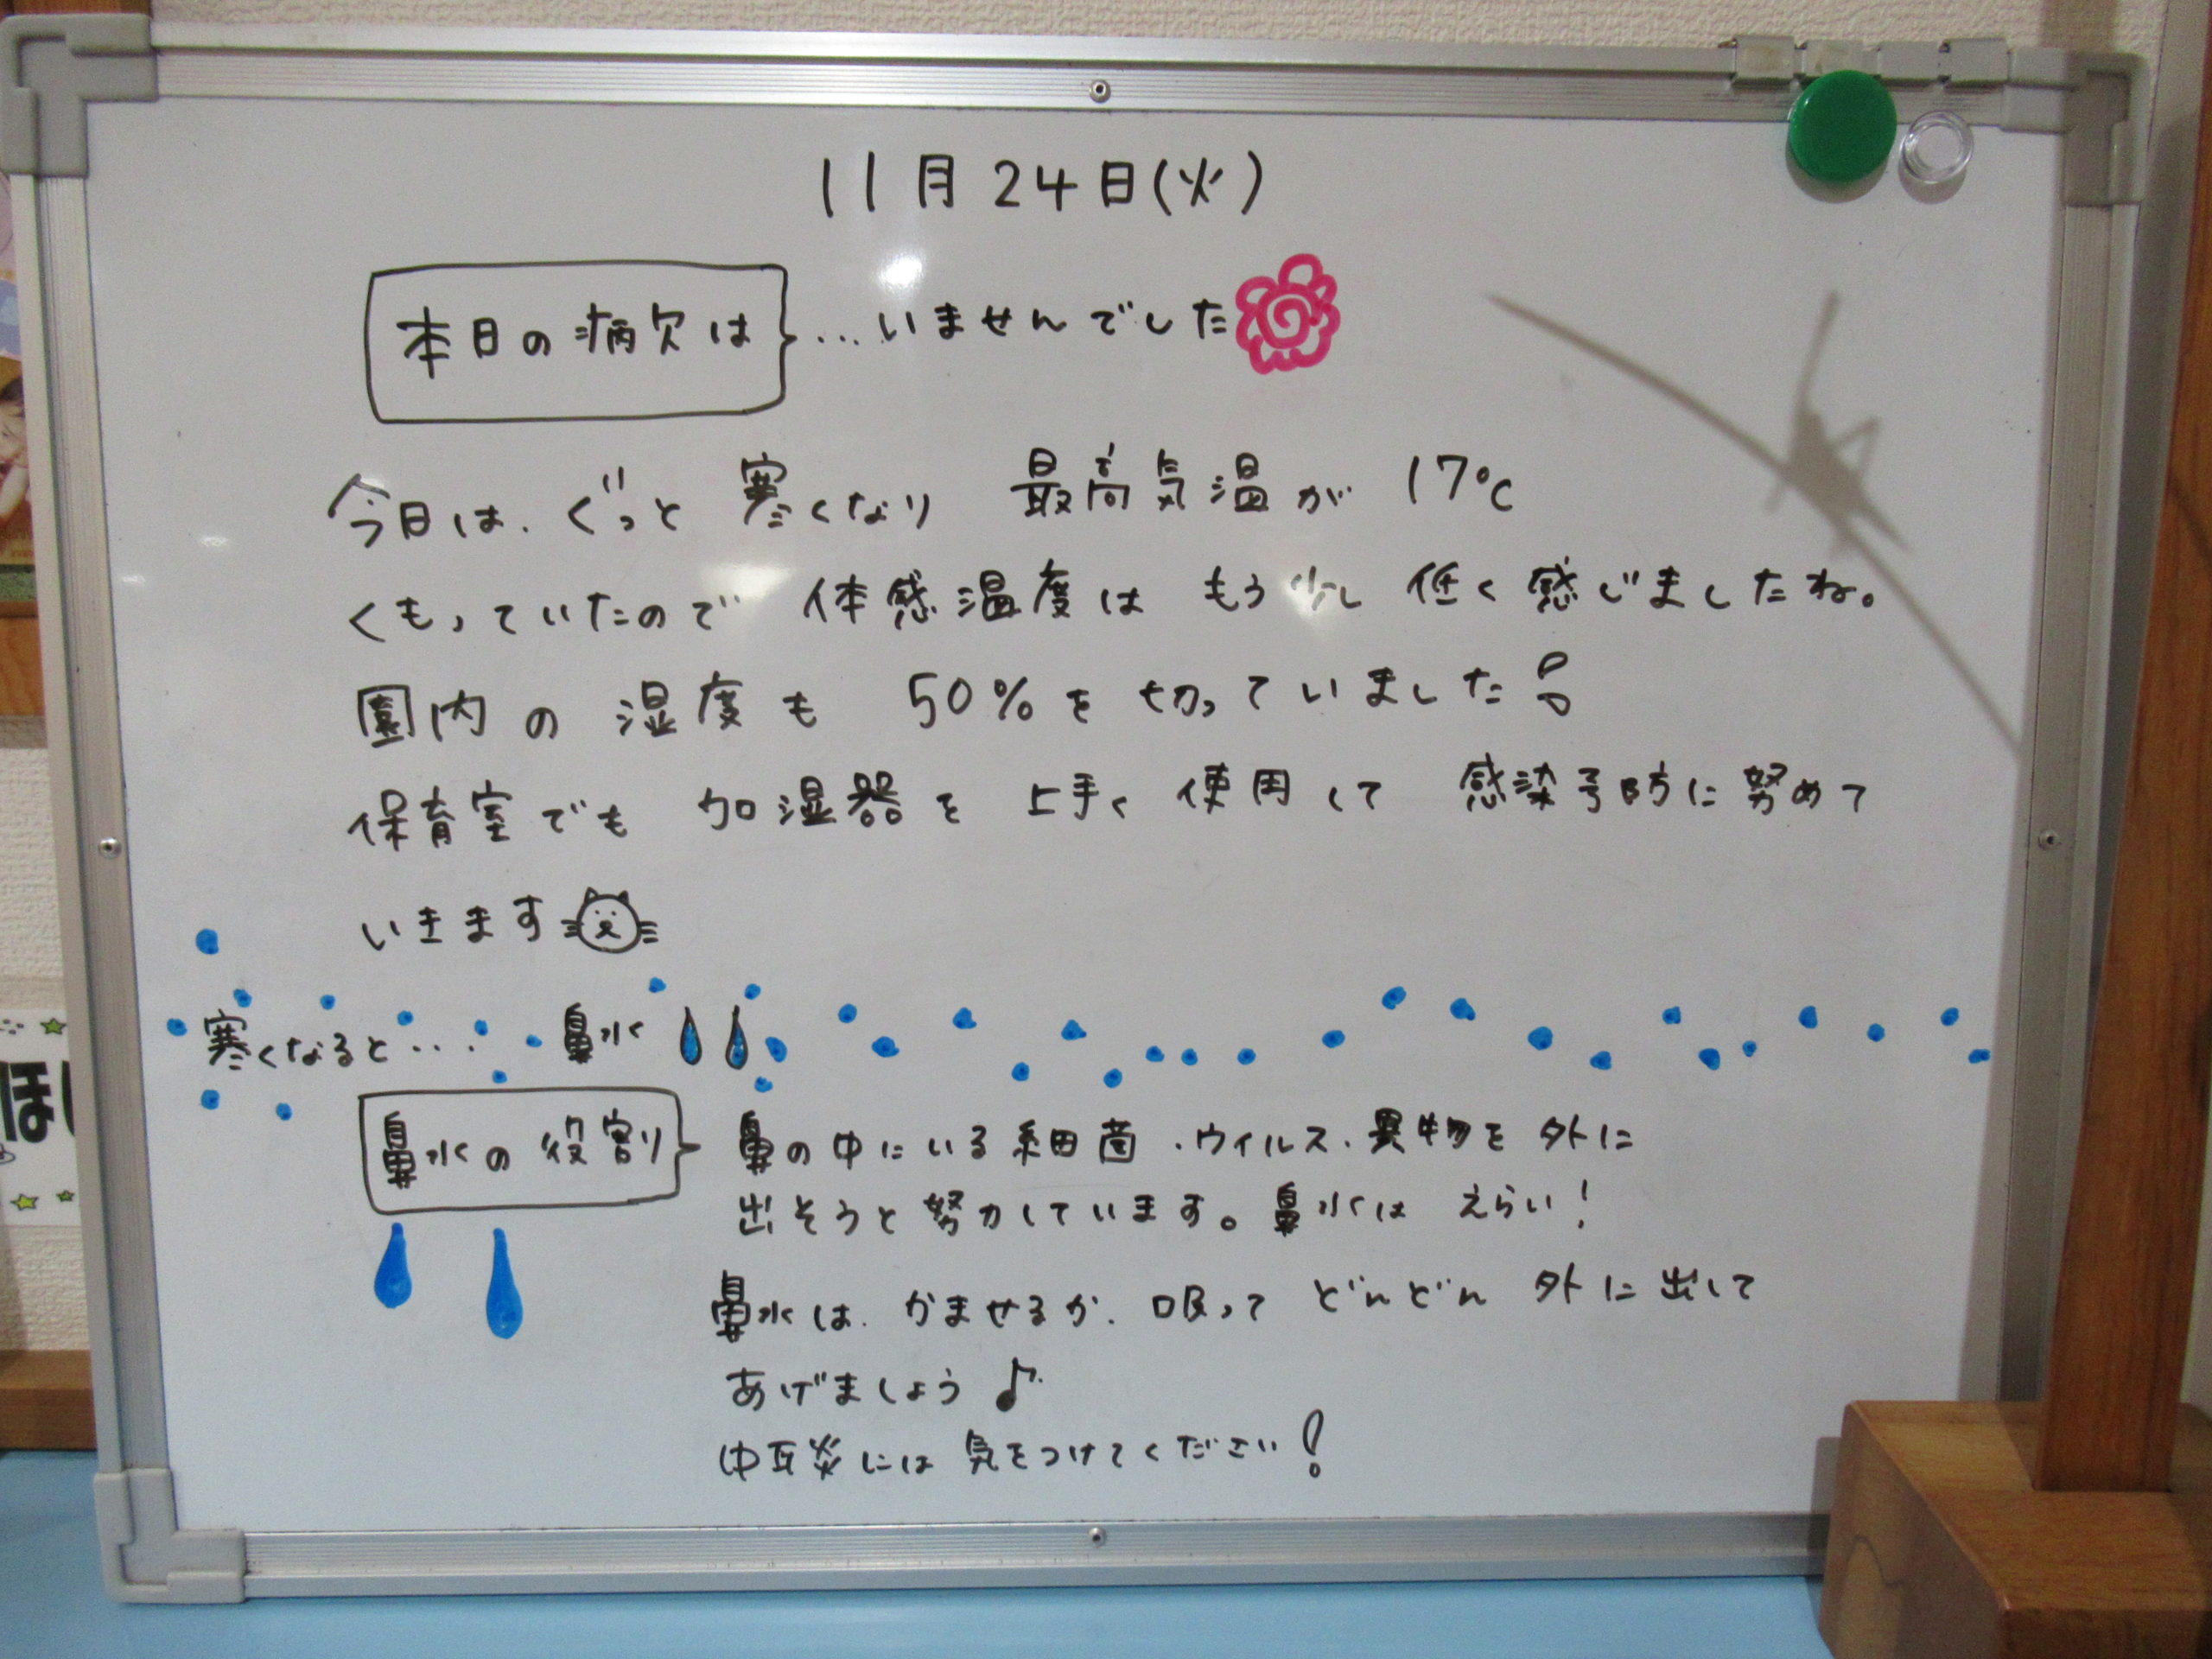 11月24日(火)
本日の病欠は …いませんでした
今日は、ぐっと寒くなり 最高気温が 17℃
くもっていたので 体感温度は もう少し 低く感じましたね。
園内の湿度も 50%を切っていました!
保育室でも 加湿器を上手く使用して 感染予防に努めて
いきます
寒くなると... 鼻水
鼻水の役割り 鼻の中にいる細菌・ウィルス・異物を外に
出そうと努力しています。鼻水は えらい!
鼻水は、かませるか、吸って どんどん 外に出して
あげましょう♪
中耳炎には気をつけてください!
ほし